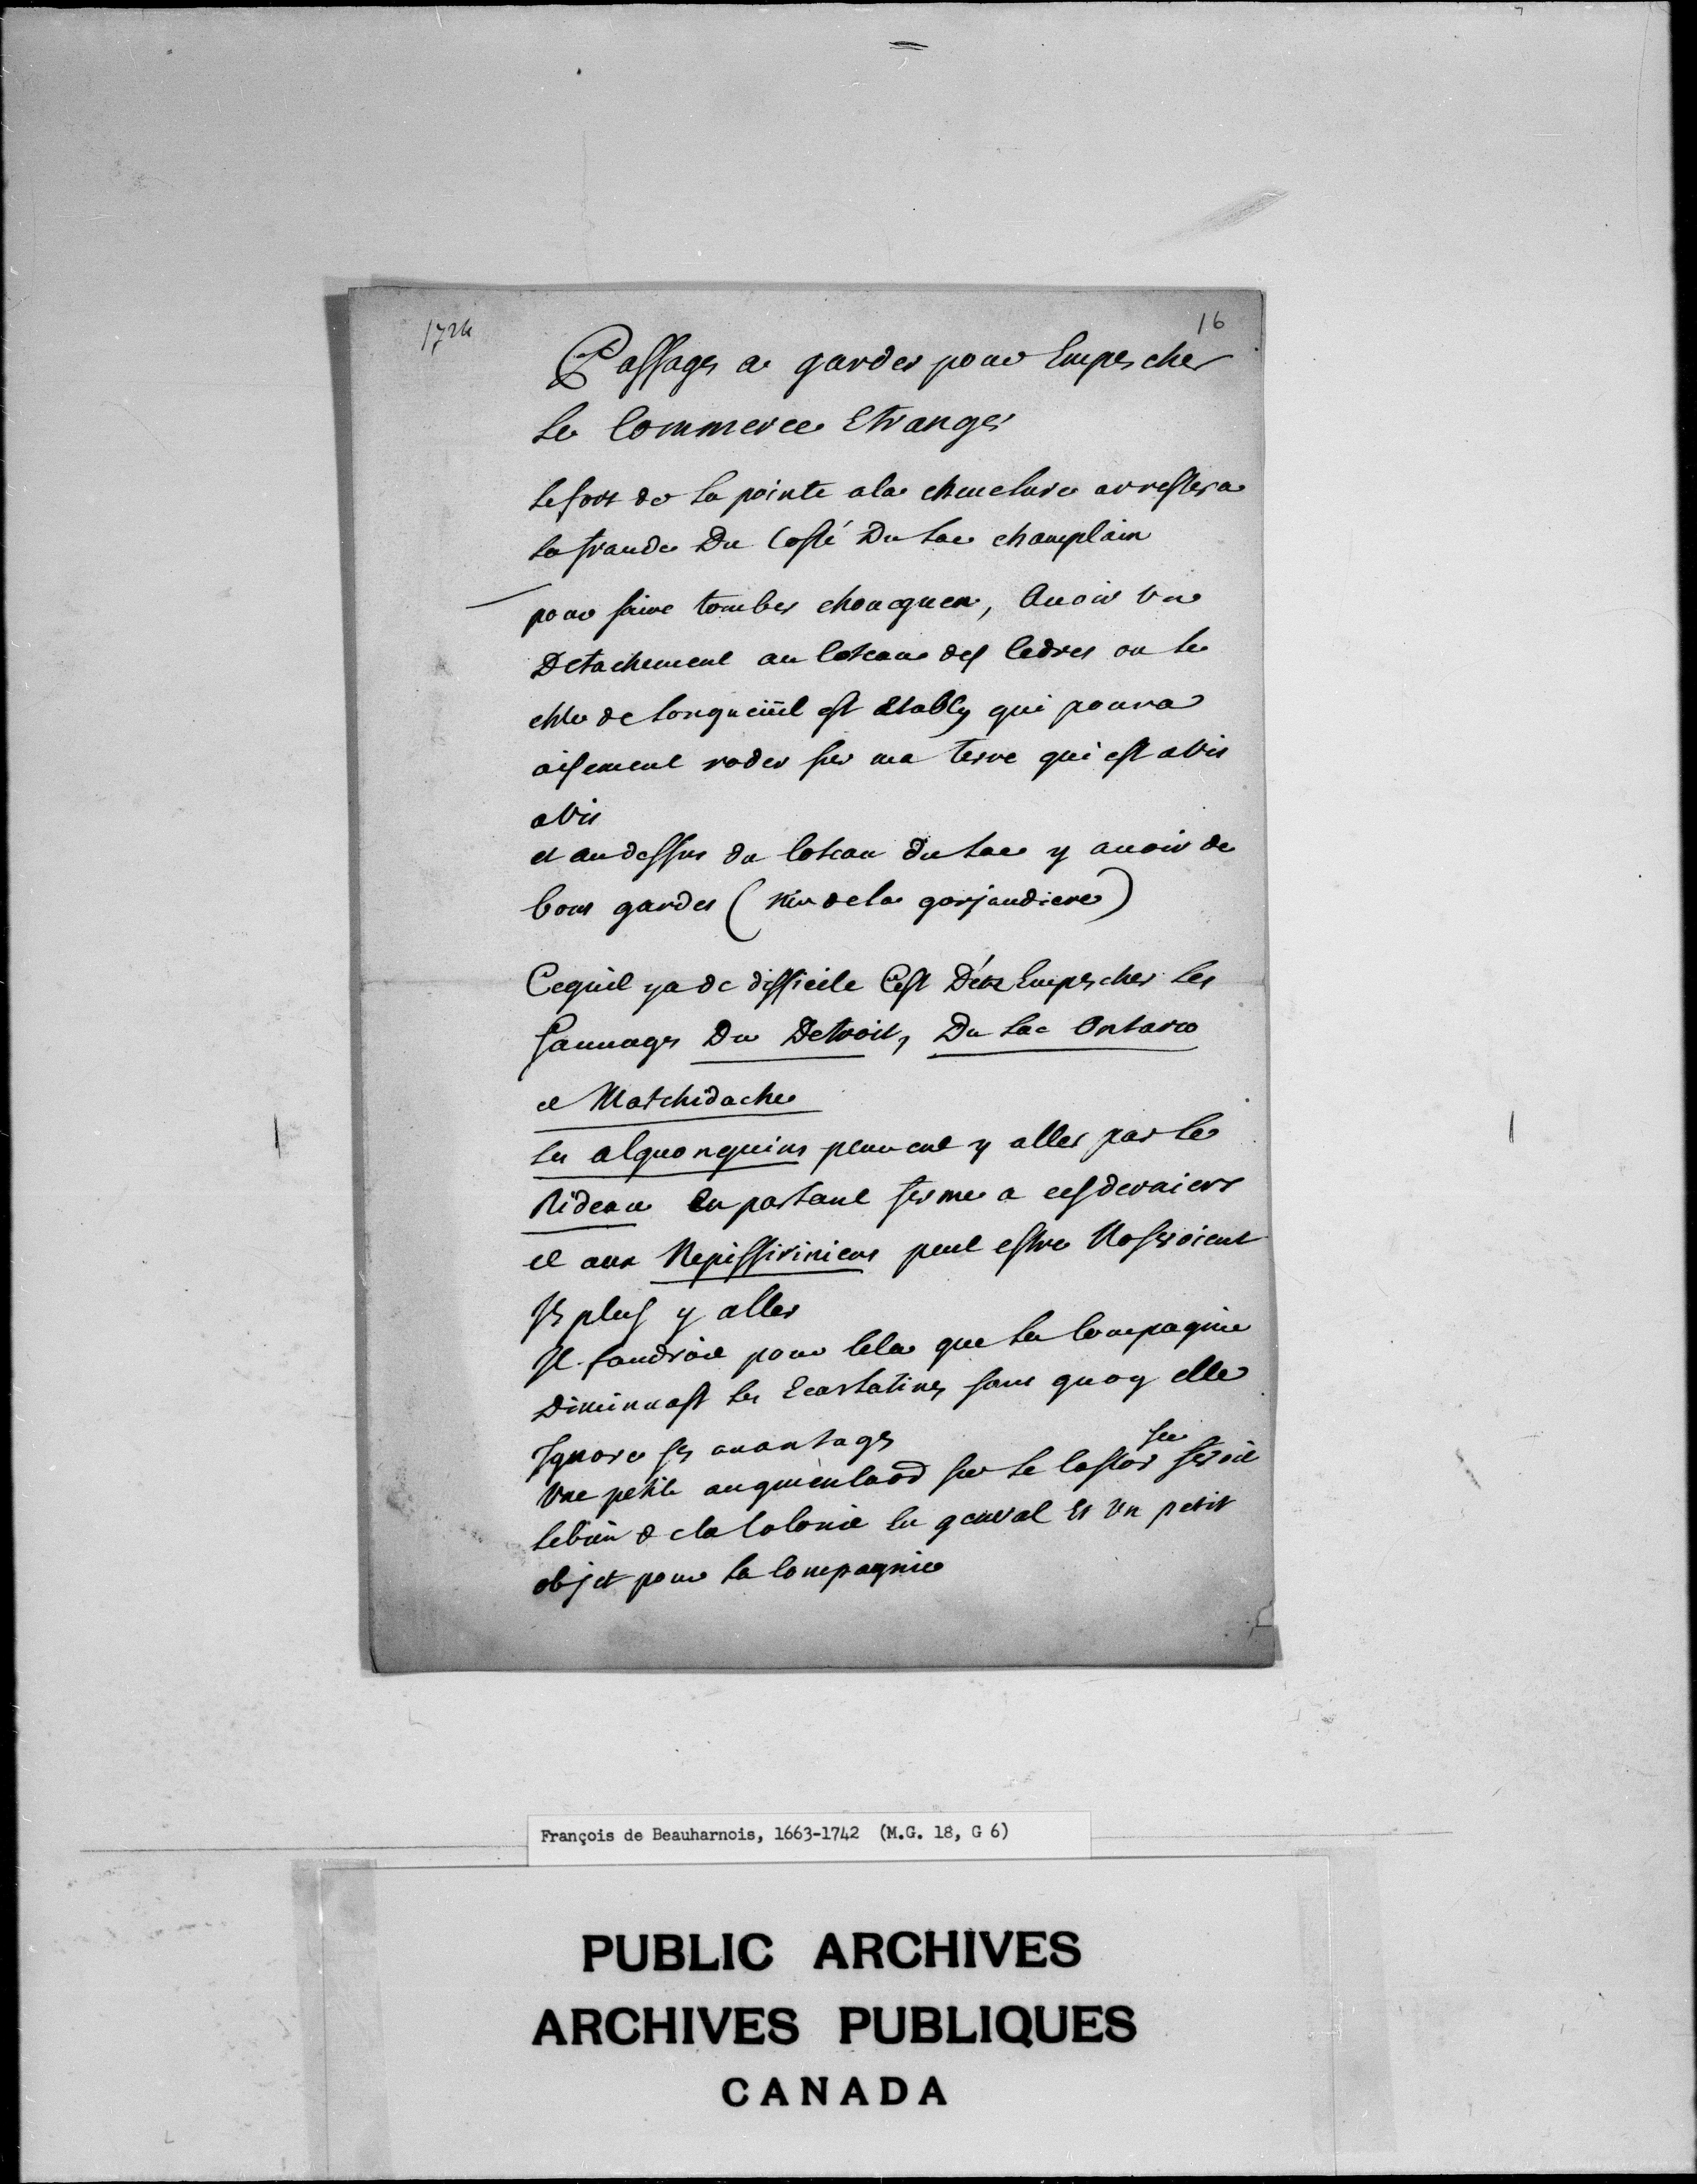 16
Passages a garder pour Empescher
Le Commerce Etranger
Le fort de la pointe a la cheuelure arrestera
la fraude Du Costé Du Lac champlain
pour faire tomber choueguen, Auoir un
Detachement au Coteau des Cedres ou le
chler de Longueüil est Etably qui poura
aisement roder sur ma terre qui est a vis
a vis
et au dessus du Coteau du Lac y auoir de
bons gardes (Riu de la gorjandiere)
Ce quil y a de difficile C'est D'en Empescher les
Sauuages Du Detroit, Du Lac Ontario
et Matchidache
Les alguonquins peuuent y aller par le
Rideau En parlant ferme a ces derniers
et aux Nepissiriniens peut estre Noseroient
Ils plus y aller
Il faudroit pour Cela que la Compagnie
Diminuast les Ecarlatines sans quoy elle
Ignore ses auantages
Une petite augmentaon sur le Castor sec seroit
le bien de la Colonie En general Et Un petit
objet pour la Compagnie
François de Beauharnois, 1663-1742 (M.G. 18, G 6)
PUBLIC ARCHIVES
ARCHIVES PUBLIQUES
CANADA